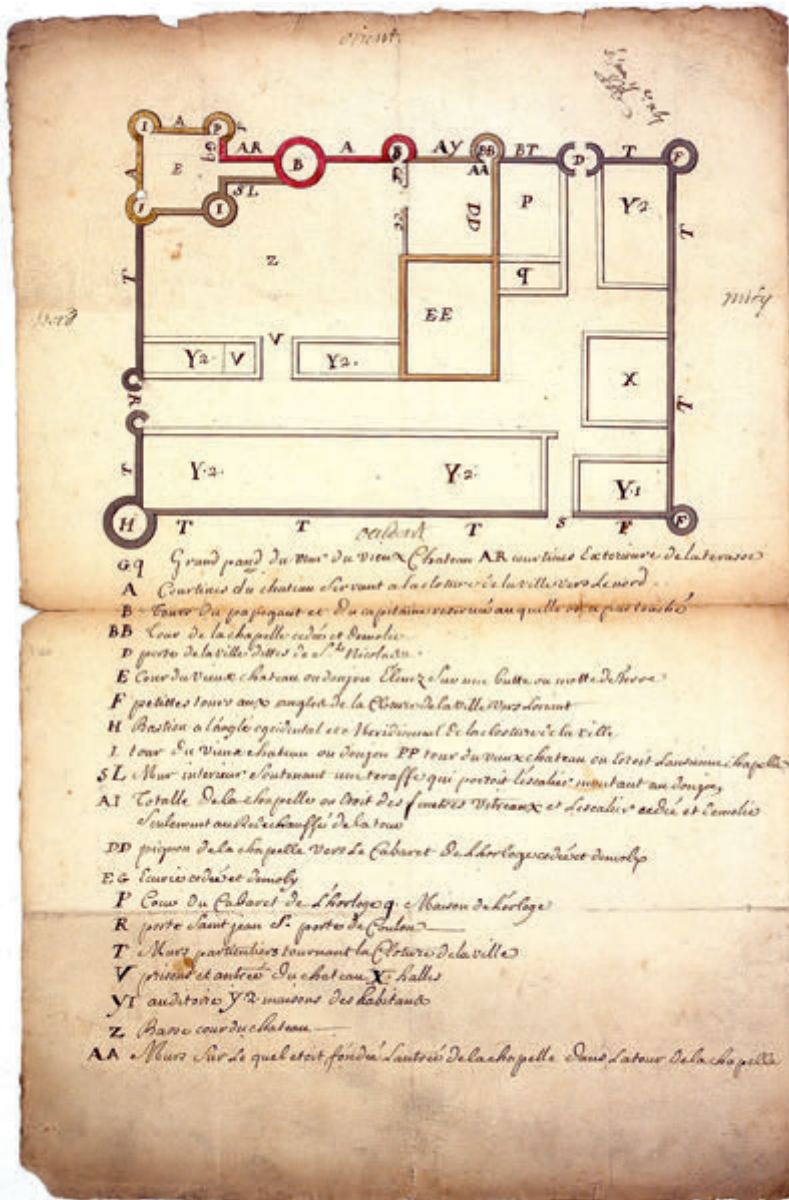 orient
I A P
A AR B A B AY BB BT D T F
Gq
E AA
A SL DD P Y2
I I T
Z q
T EE
nord midy
V
Y2 V Y2 X
R T
T Y2 Y2 Y1
H T T occident T S T F
Gq Grand pand du mur du vieux Chateau AR courtines Exterieure de la terasse
A Courtines du chateau Servant a la cloture de la ville vers Le nord
B Tours du papegaut et du capitaine reservée au quelle on a pas touché
BB tour de la chapelle cedée et demolie
D porte de la ville dittes de Ste Nicolas
E Cour du vieux chateau ou donjon Elevez Sur une butte ou motte de terre
F petittes tours aux angles de la Cloture de la ville vers
H Bastion a l'angle ocidental et Meridionnal de la closture de la ville
I tour du vieux chateau ou donjon PP tour du vieux chateau ou Etoit Lansienne chapelle
SL Mur interieur Soutenant une terasse qui portoit L'escalier montant au donjon
AI Totalle de la chapelle ou Etoit des fenetres Vitreaux et L'escalier cedée et Demolie
Seulement au Rez de chaussé de la tour
DD pignon de la chapelle vers Le Cabaret de L'horloge cedée et demoly
EG Ecurie cedée et demoly
P Cour du Cabaret de L'horloge q. Maison de l'orloge
R porte Saint jean porte de Coulon
T Murs particuliers tournant la Cloture de la ville
V prisons et antreé du chateau X halles
Y1 auditoire Y2 maisons des habitans
Z Basse cour du chateau
AA Murs Sur Le quel etoit fondée Lantreé de la chapelle dans La tour de la chapelle